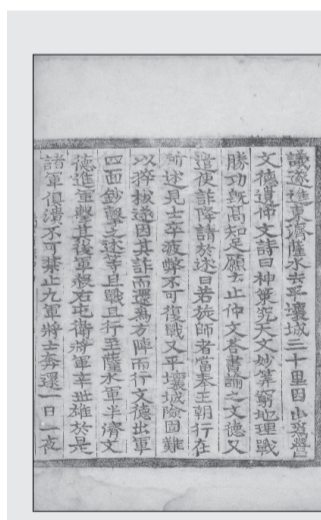 議遂進東濟薩水去平壤城三十里因山爲營
文德遺仲文詩曰神策究天文妙算窮地理戰
勝功旣高知足願云止仲文答書諭之文德又
遣使詐降請於述曰若旋師者當奉王朝行在
所述見士卒疲弊不可復戰又平壤城險固難
以猝拔遂因其詐而還爲方陣而行文德出軍
四面鈔擊之述等且戰且行至薩水軍半濟文
德進軍擊其後軍殺右屯衛將軍辛世雄於是
諸軍俱潰不可禁止九軍將士奔還一日一夜